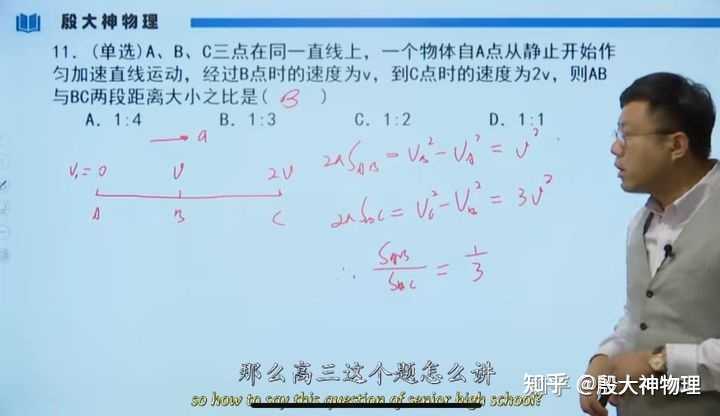 殷大神物理
11.(单选)A、B、C三点在同一直线上，一个物体自A点从静止开始作
匀加速直线运动，经过B点时的速度为v，到C点时的速度为2v，则AB
与BC两段距离大小之比是( B )
A. 1:4 B. 1:3 C. 1:2 D. 1:1
a
V₁=0 V 2V
A B C
2aS_AB = V_B² - V_A² = V²
2aS_BC = V_C² - V_B² = 3V²
∴ S_AB/S_BC = 1/3
那么高三这个题怎么讲
so how to say this question of senior high school?
知乎 @殷大神物理